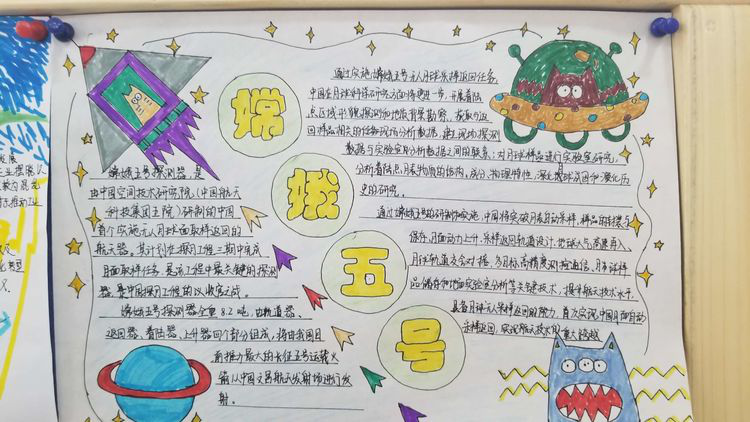 嫦
娥
五
号
嫦娥五号探测器是
由中国空间技术研究院(中国航天
科技集团五院)研制的中国
首个实施无人月球面取样返回的
航天器。其计划在探月工程三期中完成
月面取样任务,是该工程中最关键的探测
器,是中国探月工程的收官之战。
嫦娥五号探测器全重8.2吨,由轨道器、
返回器、着陆器、上升器四个部分组成,将由我国目
前推力最大的长征五号运载火
箭从中国文昌航天发射场进行发
射。
通过实施嫦娥五号无人月球采样返回任务,
中国在月球科学研究方面将更进一步,开展着陆
点区域形貌探测和地质背景勘察,获取与返
回样品相关的现场分析数据,建立现场探测
数据与实验室分析数据之间的联系;对月球样品进行实验室研究,
分析着陆点月表物质的结构、成分、物理特性,深化月球成因和演化历
史的研究。
通过嫦娥五号的研制和实施,中国将突破月表自动采样、样品的转移
保存、月面动力上升、采样返回轨道设计、地球大气高速再入、
月球轨道交会对接、多目标高精度测控通信、月面
品储存和地面实验室分析等关键技术,提升航天技术水平,
具备月球无人采样返回的能力,首次实现中国月面自动
采样返回,实现航天技术的重大跨越